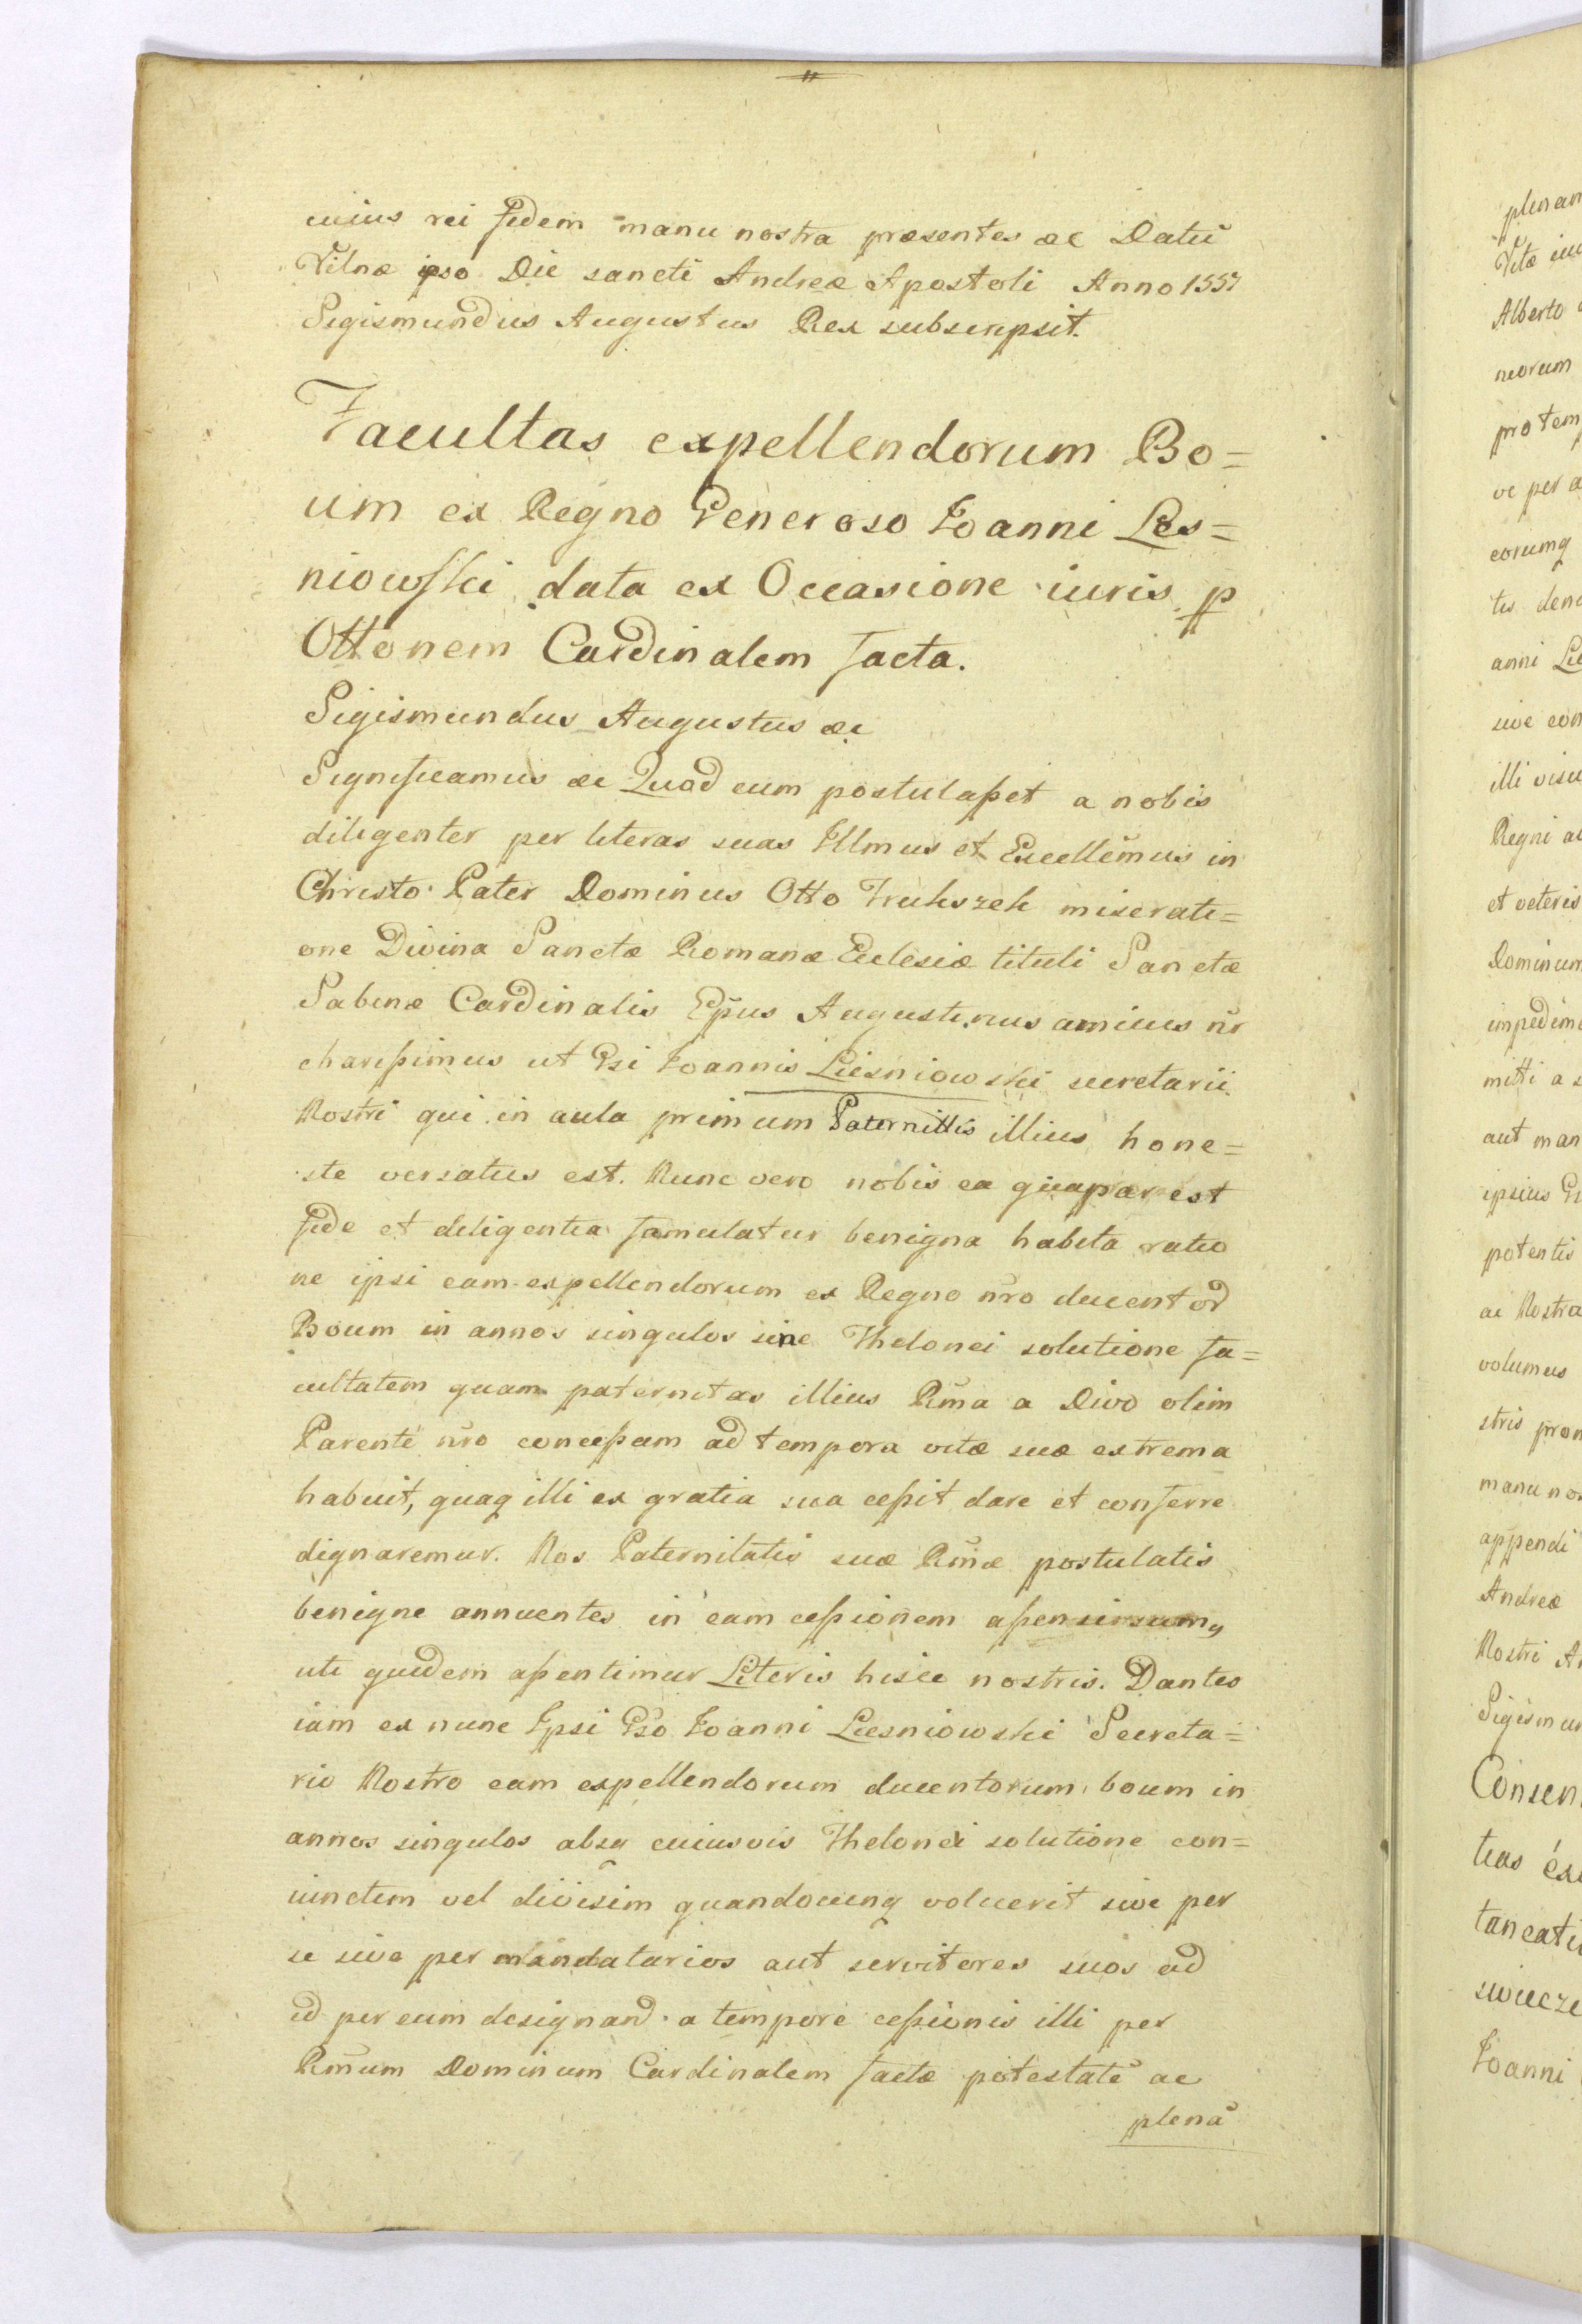 cuius rei fidem manu nostra præsentes æc Datũ
Vilnæ ipso Die sancti Andreæ Apostoli Anno 1557
Sigismundus Augustus Rex subscripsit.
Facultas expellendorum Bo=
um ex Regno Generoso Joanni Les=
niowski data ex Occasione iuris p
Ottonem Cardinalem facta.
Sigismundus Augustus æc
Significamus æc Quod cum postulaßet a nobis
diligenter per literas suas Illmus et Excellẽmus in
Christo Pater Dominus Otto Truhszeh miserati=
one Divina Sanctæ Romanæ Ecclesiæ tituli Sanctæ
Sabinæ Cardinalis Ep̃us Augustinus amicus nr̃
charißimus ut Gsi Joannis Liesniowski secretarii
Nostri qui in aula primum Paternittis illius hone=
ste versatus est. Nunc vero nobis ea qua par est
fide et diligentia famulatur benigna habita ratio
ne ipsi eam expellendorum ex Regno nr̃o ducentor
Boum in annos singulos sine Thelonei solutione fa=
cultatem quam paternitas illius Rm̃a a Divo olim
Parente nr̃o conceßam ad tempora vitæ suæ extrema
habuit, quaq illi ex gratia sua ceßit dare et conferre
dignaremur. Nos Paternitatis suæ Rm̃æ postulatis
benigne annuentes in eam ceßionem aßensi sumq
uti quidem aßentimur Literis hisce nostris. Dantes
iam ex nunc Ipsi Gso Joanni Liesniowski Secreta=
rio Nostro eam expellendorum ducentorum boum in
annos singulos absq cuiusvis Thelonei solutione con=
iunctim vel divisim quandocunq voluerit sive per
se sive per mandatarios aut servitores suos ad
id per eum designand. a tempore ceßionis illi per
Rm̃um Dominum Cardinalem factæ potestatẽ ac
plenã
plenan
Alberto
neorum
protem
ve per a
eorumq
tis den
anni Lie
sive con
illi visu
Regni ac
et veteris
Dominum
impedime
mitti a s
aut man
ipsius G
potentis
ac Nostra
volumus
stris prom
manu nos
appendi
Andreæ
Nostri A
Sigismun
Consen
tias ex
taneati
swiecze
Joanni